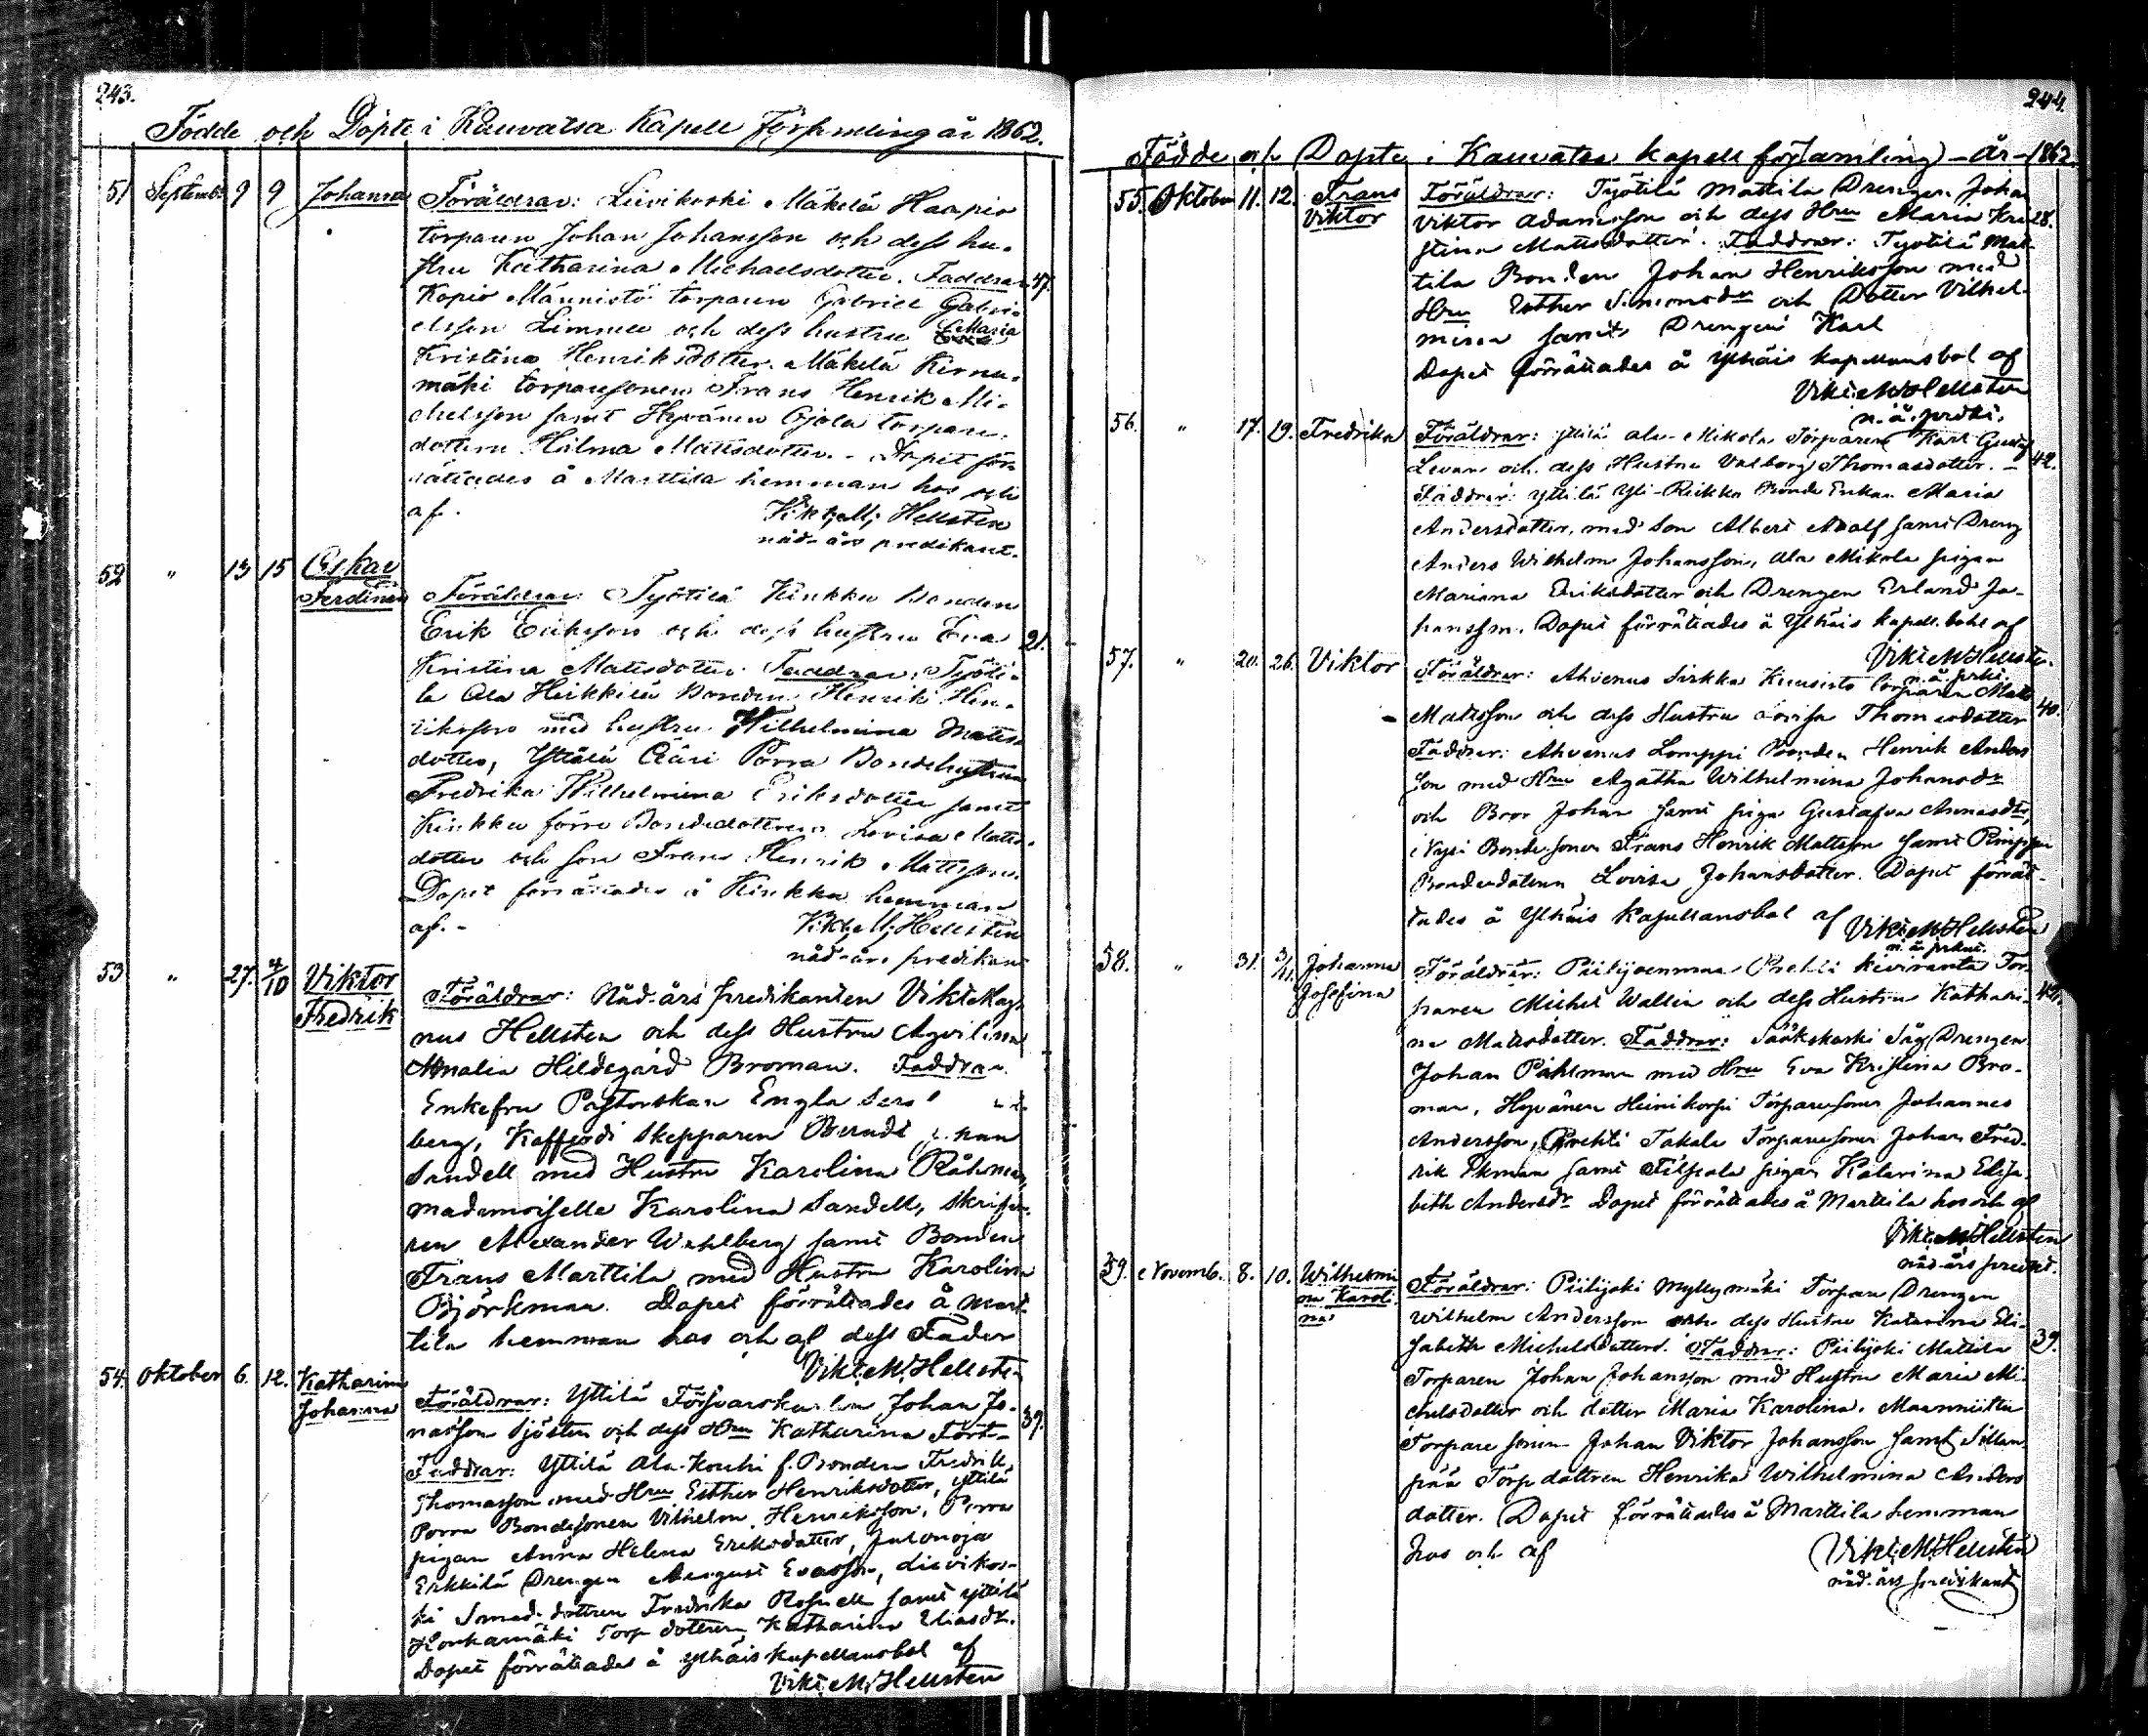 243.
Födde och Döpte i Kauvatsa Kapell Församling år 1862.
51 Septemb. 9 9 Johanna Föräldrar: Liivikoski Mäkelä Haapio
torparen Johan Johansson och dess hu-
stru Katharina Michaelsdotter. Faddrar 47.
Kopio Männistö torparen Gabriel Gabri-
elsson Limnee och dess hustru Maria
Kristina Henriksdotter. Mäkelä Kirnu-
mäki torparesonen Frans Henrik Mi-
chelsson samt Hyvänen Ojola torpare-
dottern Hilma Mattsdotter. - Dopet för-
rättades å Marttila hemman hos och
af.
Vikt. M. Hellsten
nåd-års predikant.
52 " 13 15 Oskar
Ferdinan Föräldrar: Työtilä Kinkku Bonden
Erik Eriksson och dess hustru Eva 21.
Kristina Mattsdotter. Faddrar: Työti-
lä Ala Heikkilä Bonden Henrik Hen-
riksson med hustru Wilhelmina Matts-
dotter, Yttilä Ääri Porra Bondehustrun
Fredrika Wilhelmina Eriksdotter samt
Kinkku förra Bondedottren Lovisa Matts-
dotter och son Frans Henrik Mattsson.
Dopet förrättades å Kinkku hemman
af. - Vikt. M. Hellsten
nåd-års predikant
53 " 27. 4/10 Viktor
Fredrik
Föräldrar: Nåd-års predikanten Vikt. Mag-
nus Hellsten och dess Hustru Aqvilina
Amalia Hildegård Broman. Faddrar.
Enkefru Pastorskan Engla
berg, Kofferdi Skepparen Berndt
Sandell med Hustru Karolina Råhman,
mademoiselle Karolina Sandell, Skrifva-
ren Alexander Wahlberg samt Bonden
Frans Marttila med Hustru Karolina
Björkman. Dopet förrättades å Mart-
tila hemman hos och af dess Fader
Vikt. M. Hellsten
54. Oktober 6. 12. Katharina
Johanna
Föräldrar: Yttilä Försvarskarlen Johan Jo-
nasson Sjösten och dess Hru Katharina Fört- 39.
Faddrar: Yttilä Ala-Kouhi f. Bonden Fredrik
Thomasson med Hru Esther Henriksdotter, Yttilä
Porra Bondesonen Vilhelm Henriksson, Porra
pigan Anna Helena Eriksdotter, Jalonoja
Erkkilä Drengen August Evasson, Liivikos-
ki Smed-dottren Fredrika Rosnell samt Yttilä
Honkamäki Torp dottren Katharina Eliasdr.
Dopet förrättades å Ylhäis kapellansbol af
Vikt. M. Hellsten
244.
Födde och Döpte i Kauvatsa kapell församling - År - 1862.
55. Oktober 11. 12. Frans
Viktor
Föräldrar: Työtilä Mattila Drengen Johan
Viktor Adamsson och dess Hru Maria Kri- 28.
stina Mattsdotter. Faddrar: Tyotilä Mat-
tila Bonden Johan Henriksson med
Hru Esther Simonsdr och Dotter Vilhel-
mina samt Drengen Karl
Dopet förrättades å Ylhäis kapellansbol af
Vikt. M. Hellsten
n. å. predik.
56. " 17. 19. Fredrika Föräldrar: Yttilä Ala-Mikola Torparen Karl Gustaf
Levan och dess Hustru Valborg Thomasdotter. - 42.
Faddrar: Yttilä Yli-Rekko Bonde Enkan Maria
Andersdotter, med Son Albert Adolf samt Dreng
Anders Wilhelm Johansson, Ala Mikola pigan
Mariana Eriksdotter och Drengen Erland Jo-
hansson. Dopet förrättades å Ylhäis kapell. bohl af
Vikt. M. Hellsten.
n. å. prki.
57. " 20. 26. Viktor Föräldrar: Ahvenus Sirkka Kuusisto Torparen Matts
Mattsson och dess Hustru Lovisa Thomasdotter 40.
Faddrar: Ahvenus Lomppi Bonden Henrik Anders
son med Hru Agatha Wilhelmina Johansdr
och Bror Johan samt piga Gustafva Annasdtr,
Nysi Bonde sonen Frans Henrik Mattsson samt Pimppi
Bondedottren Lovisa Johansdotter. Dopet förrät-
tades å Ylhäis kapellansbol af Vikt. M. Hellsten
n. å. prkni.
58. " 31. 3/11. Johanna
Josefina
Föräldrar: Piilijoenmaa Prehti Kiviranta Tor-
paren Michel Wallin och dess Hustru Kathari-
na Mattsdotter. Faddrar: Sääkskoski Såg Drengen
Johan Påhlman med Hru Eva Kristina Bro-
man, Hyvänen Heinikorpi Torparesonen Johannes
Andersson, Prehti Takala Torparesonen Johan Fred-
rik Ekman samt Tilssala pigan Katarina Elisa-
beth Andersdr Dopet förrättades å Marttila hos och af
Vikt. M. Hellsten
nåd-års predkt.
59. Novemb. 8. 10. Wilhelmi
na Karoli
na
Föräldrar: Piilijoki Myllymäki Torpare Drengen
Wilhelm Andersson och dess Hustru Katarina Eli-
sabeth Michelsdotter. Faddrar: Piilijoki Mattila 39.
Torparen Johan Johansson med Hustru Maria Mi-
chelsdotter och dotter Maria Karolina. Maanniittu
Torpare sonen Johan Viktor Johansson samt Sillan-
pää Torp dottren Henrika Wilhelmina Anders
dotter. Dopet förrättades å Marttila hemman
hos och af
Vikt. M. Hellsten
nåd-års predikant